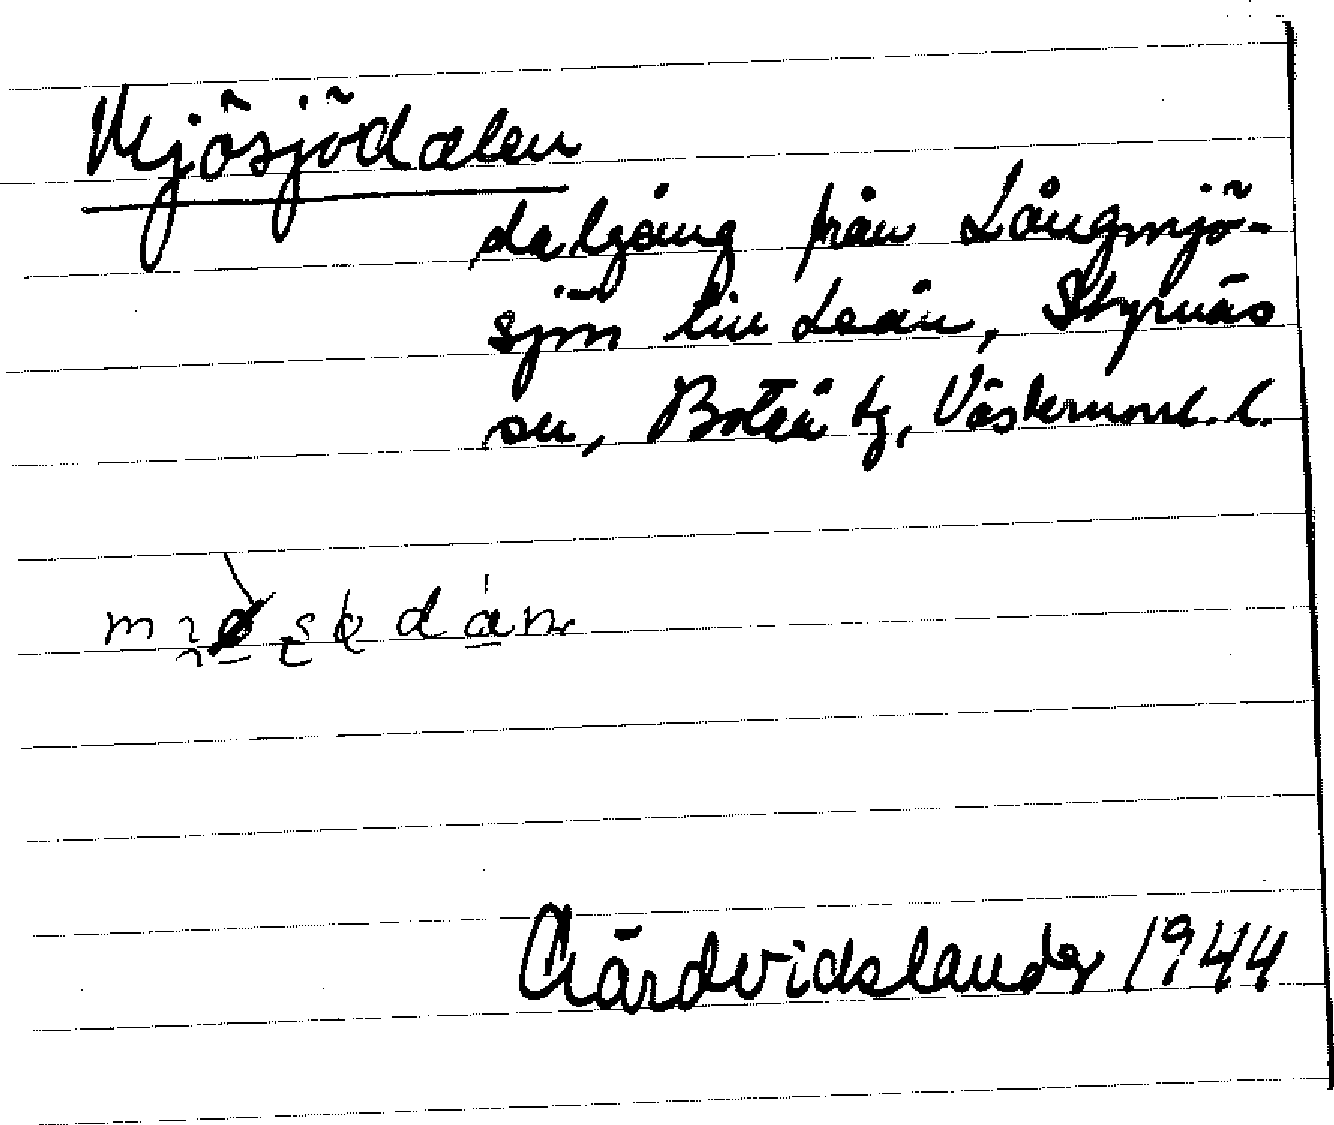 Mjösjödalen
dalgång från Långmjö-
sjön till Leån, Styrnäs
sn, Boteå tg, Västernorrl. l.
Gärdvidslander 1944